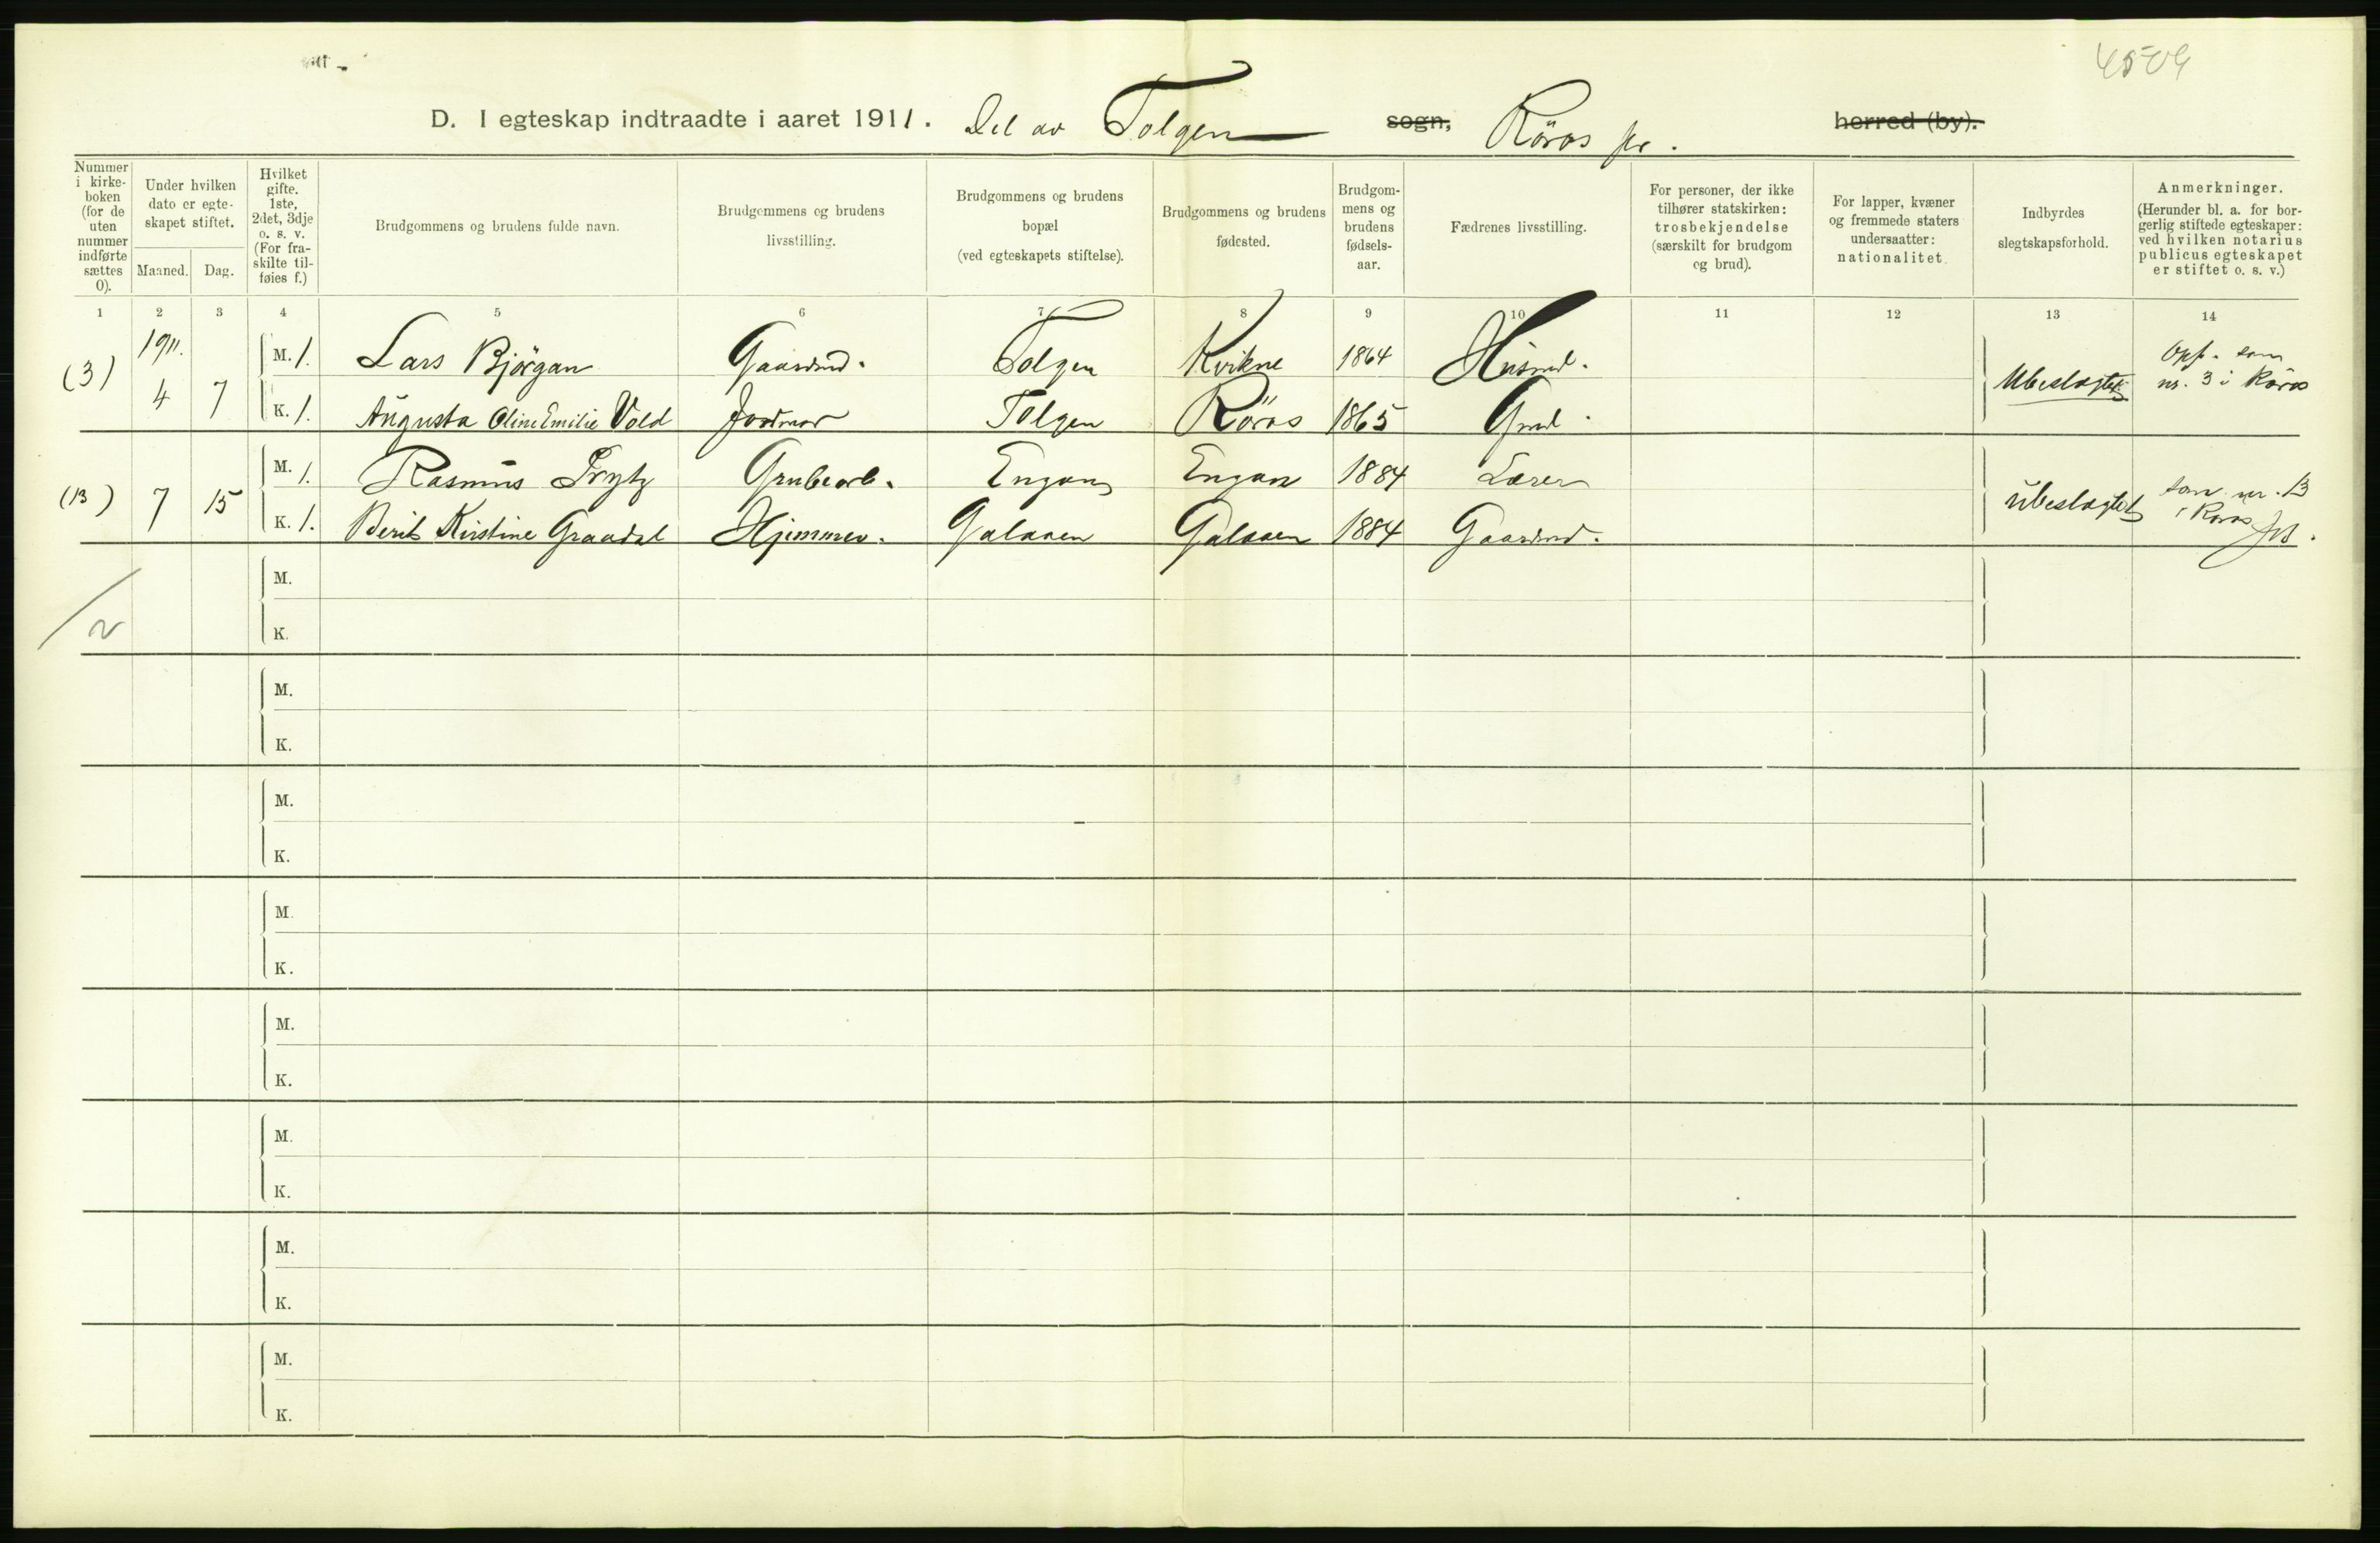 4504
D. I egteskap indtraadte i aaret 1911. Del av Tolgen sogn, Röros pr. herred (by).
Nummer i kirkeboken (for de uten nummer indførte sættes 0).
Under hvilken dato er egteskapet stiftet.
Maaned. Dag.
Hvilket gifte. 1ste, 2det, 3dje o. s. v. (For fraskilte tilføies f.)
Brudgommens og brudens fulde navn.
Brudgommens og brudens livsstilling.
Brudgommens og brudens bopæl (ved egteskapets stiftelse).
Brudgommens og brudens fødested.
Brudgommens og brudens fødselsaar.
Fædrenes livsstilling.
For personer, der ikke tilhører statskirken: trosbekjendelse (særskilt for brudgom og brud).
For lapper, kvæner og fremmede staters undersaatter: nationalitet.
Indbyrdes slegtskapsforhold.
Anmerkninger. (Herunder bl. a. for borgerlig stiftede egteskaper: ved hvilken notarius publicus egteskapet er stiftet o. s. v.)
1 2 3 4 5 6 7 8 9 10 11 12 13 14
1911.
(3) 4 7 M. 1. Lars Bjørgan Gaardmd. Tolgen Kvikne 1864 Husmd. Ubeslegtet Opf. som nr. 3 i Röros
K. 1. Augusta Oline Emilie Vold Jordmor Tolgen Röros 1865 Grmd.
(13) 7 15 M. 1. Rasmus Prytz Grubearb. Engan Engan 1884 Lærer Ubeslegtet som nr. 13 i Röros
K. 1. Berit Kirstine Graadal Hjemmev. Galaaen Galaaen 1884 Gaardmd.
2
M.
K.
M.
K.
M.
K.
M.
K.
M.
K.
M.
K.
M.
K.
M.
K.